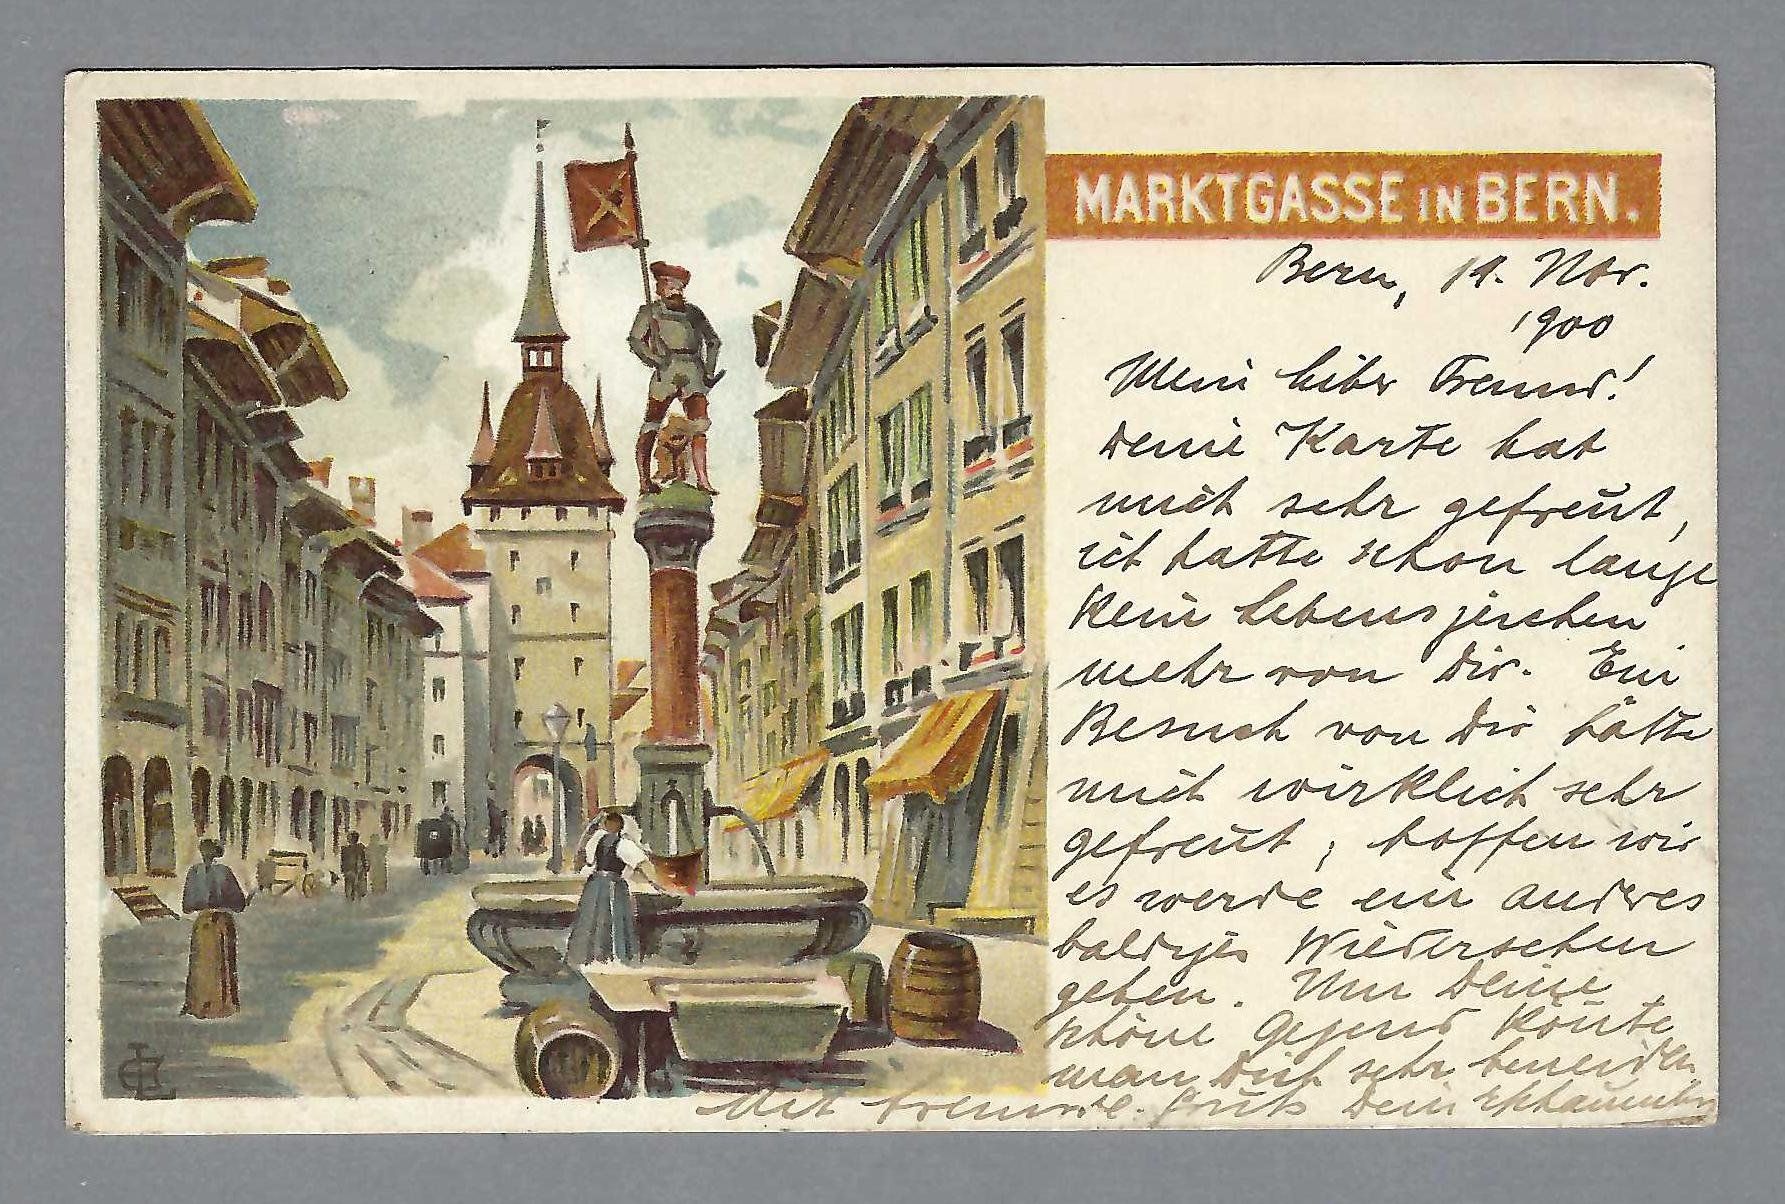 MARKTGASSE IN BERN.
Bern, 19. Nov.
1900
Mein lieber Freund!
Deine Karte hat
mich sehr gefreut,
ich hatte schon lange
kein Lebenszeichen
mehr von Dir. Ein
Besuch von Dir hätte
mich wirklich sehr
gefreut; hoffen wir
es werde ein anderes
baldiges Wiedersehen
geben. Um Deine
schöne Gegend könnte
man Dich sehr beneiden.
Mit freundl. Gruss Dein